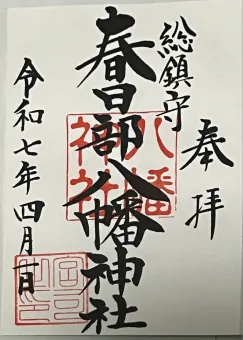 奉拝
総鎮守
春日部八幡神社
八幡
神社
令和七年四月日